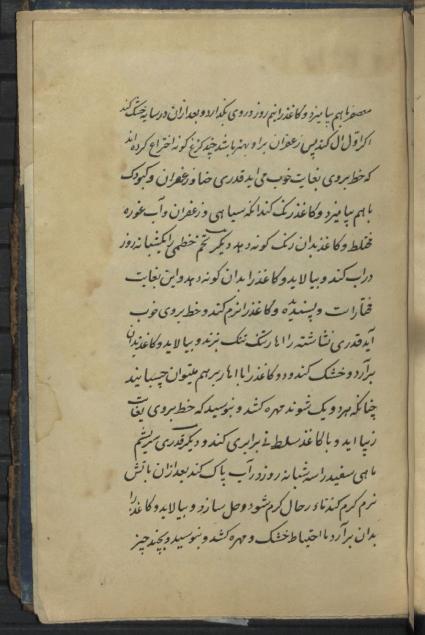 معصفر باهم بیامیزد و کاغذ را نیم روز در وی بگذارد و بعد از آن در سایه خشک کند
اگر اول آل کند پس زعفران براو بهتر باشد چند کونه اختراع کرده‌اند
که خط بروی بغایت خوب می‌آید قدری حنا و زعفران و کبودک
باهم بیامیزد و کاغذ رنک کند آنکه سیاهی و زعفران و آب غوره
مختلط و کاغذ بدان رنک کونه دهد دیکر تخم خطمی را یکشبانه روز
در آب کند و بیالاید و کاغذ را بدان کونه دهد و این بغایت
مختار است و پسندیده و کاغذ را نرم کند و خط بروی خوب
آید قدری نشاسته را اهار تنک بزند و بیالاید و کاغذ بدان
برآرد و خشک کند و دو کاغذ را با اهار برهم میتوان چسبانید
چنانکه هر دو یک شوند مهره کشد و بنویسد که خط بروی بغایت
زیبا آید و با کاغذ سلطانی برابری کند و دیکر قدری سریشم
ماهی سفید را سه شبانه روز در آب پاک کند بعد از آن باتش
نرم کرم کند تا در حال کرم شود و حل سازد و بیالاید و کاغذ را
بدان برآرد با احتیاط خشک و مهره کشد و بنویسد و بچند چیز